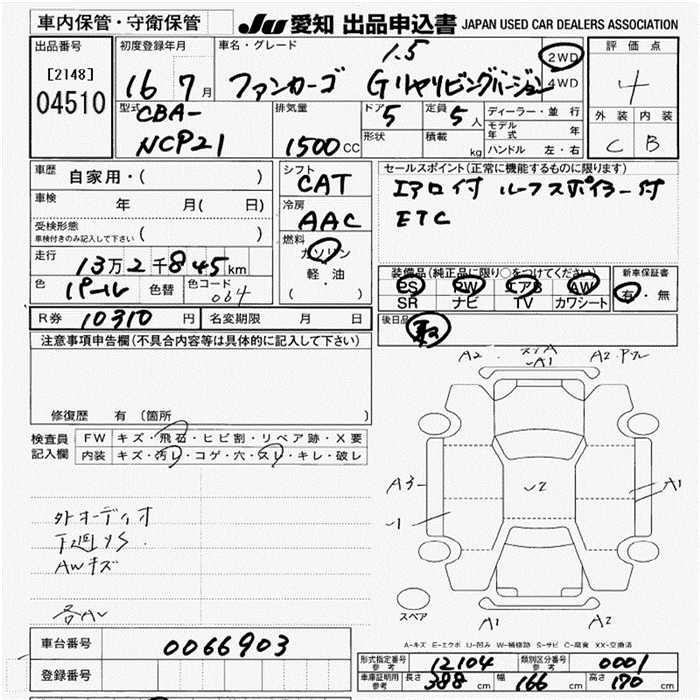 車内保管・守衛保管
JU 愛知 出品申込書 JAPAN USED CAR DEALERS ASSOCIATION
出品番号
[2148]
04510
初度登録年月
16 7月
車名・グレード
1.5
ファンカーゴ Gリヤリビングバージョン
2WD
4WD
評価点
4
外装 内装
C B
型式
CBA-
NCP21
排気量
1500CC
ドア 5
形状
定員 5人
積載 kg
ディーラー・並行
モデル年式 年
ハンドル 左・右
車歴 自家用・( )
車検 年 月( 日)
受検形態
車検付きのみ記入して下さい ( )
走行 13万2千845km
色 パール 色替 色コード 064
シフト
CAT
冷房
AAC
燃料
ガソリン
軽・油
( )
セールスポイント(正常に機能するものに限ります)
エアロ付 ルーフスポイラー付
ETC
装備品(純正品に限り○をつけてください)
PS PW エアB AW
SR ナビ TV カワシート
新車保証書
有・無
後日品
R券 10310円 名変期限 月 日
注意事項申告欄(不具合内容等は具体的に記入して下さい)
修復歴 有(箇所 )
検査員記入欄
FW キズ・飛石・ヒビ割・リペア跡・X要
内装 キズ・汚レ・コゲ・穴・スレ・キレ・破レ
外オーディオ
下廻りS
AWキズ
各A
A2
A1
A2
A3
A1
A1
A2
スペア
A-キズ E-エクボ U-凹み W-補修跡 S-サビ C-腐食 XX-交換済
車台番号 0066903
登録番号
形式指定番号参考 12104 類別区分番号参考 0001
車庫証明用参考 長さ 388cm 幅 166cm 高さ 170cm